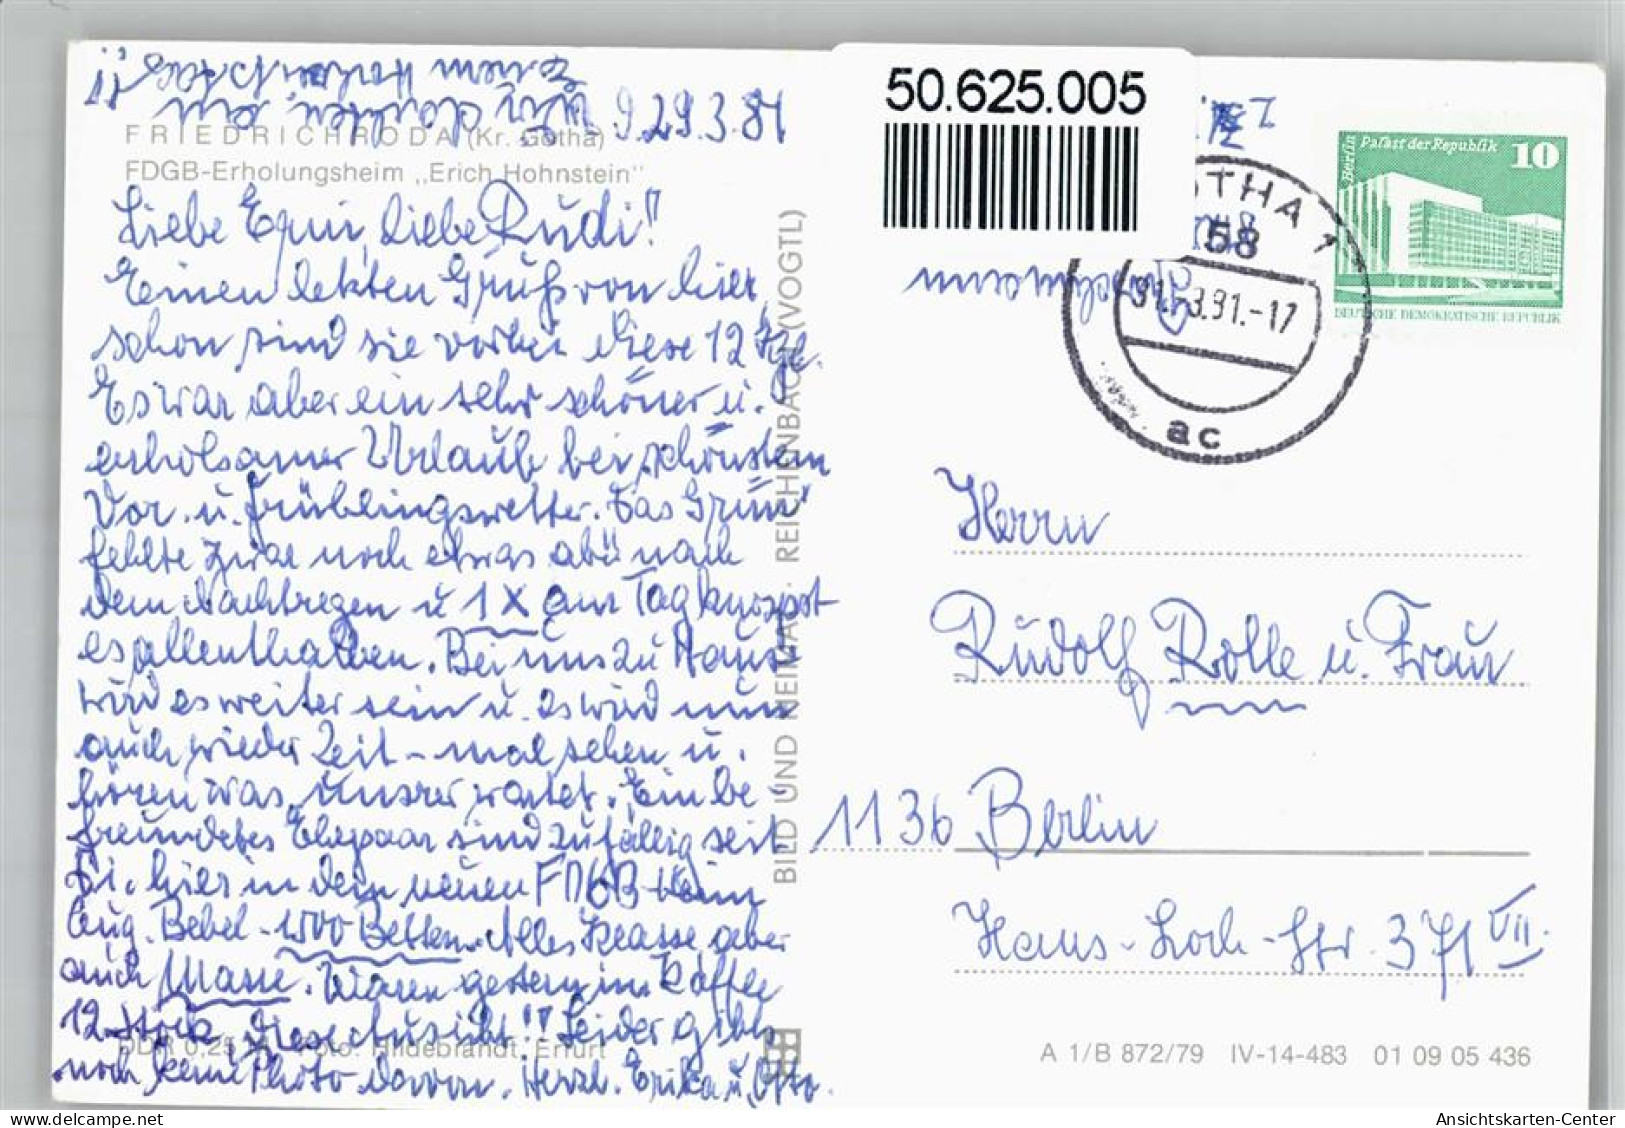 Wir dachten an
Euern Hochzeitstag !!
g. 29.3.81
FRIEDRICHRODA (Kr. Gotha)
FDGB-Erholungsheim „Erich Hohnstein"
Liebe liebe Rudi!!
Einen letzten Gruß von hier,
schon sind sie vorbei diese 12 Tge.
Es war aber ein sehr schöner u.
erholsamer Urlaub bei schönstem
Vor- u. Frühlingswetter. Das Grün
fehlte zwar noch etwas aber nach
dem Nachtregen u 1 x am Tag knospet
es allenthalben. Bei uns zu Haus
wird es weiter sein u. es wird nun
auch wieder Zeit - mal sehen u.
hören was unserer wartet. Ein be-
freundetes Ehepaar sind zufällig seit
Di. hier in dem neuen FDGB-Heim
Aug. Bebel - 1500 Betten. Alles Klasse, aber
auch Masse. Waren gestern im Kaffee
12. Stock, diese Aussicht!! Leider gibts
noch kein Photo davon. Herzl. Erika u. Otto.
DDR 0,25 M Foto: Hildebrandt, Erfurt
BILD UND HEIMAT REICHENBACH (VOGTL)
50.625.005
GOTHA 1
58
31.-3.81.-17
ac
Berlin
Palast der Republik
10
DEUTSCHE DEMOKRATISCHE REPUBLIK
Herrn
Rudolf Rolle u. Frau
1136 Berlin
Hans-Loch-Str. 371 VII.
A 1/B 872/79 IV-14-483 01 09 05 436
Ansichtskarten-Center